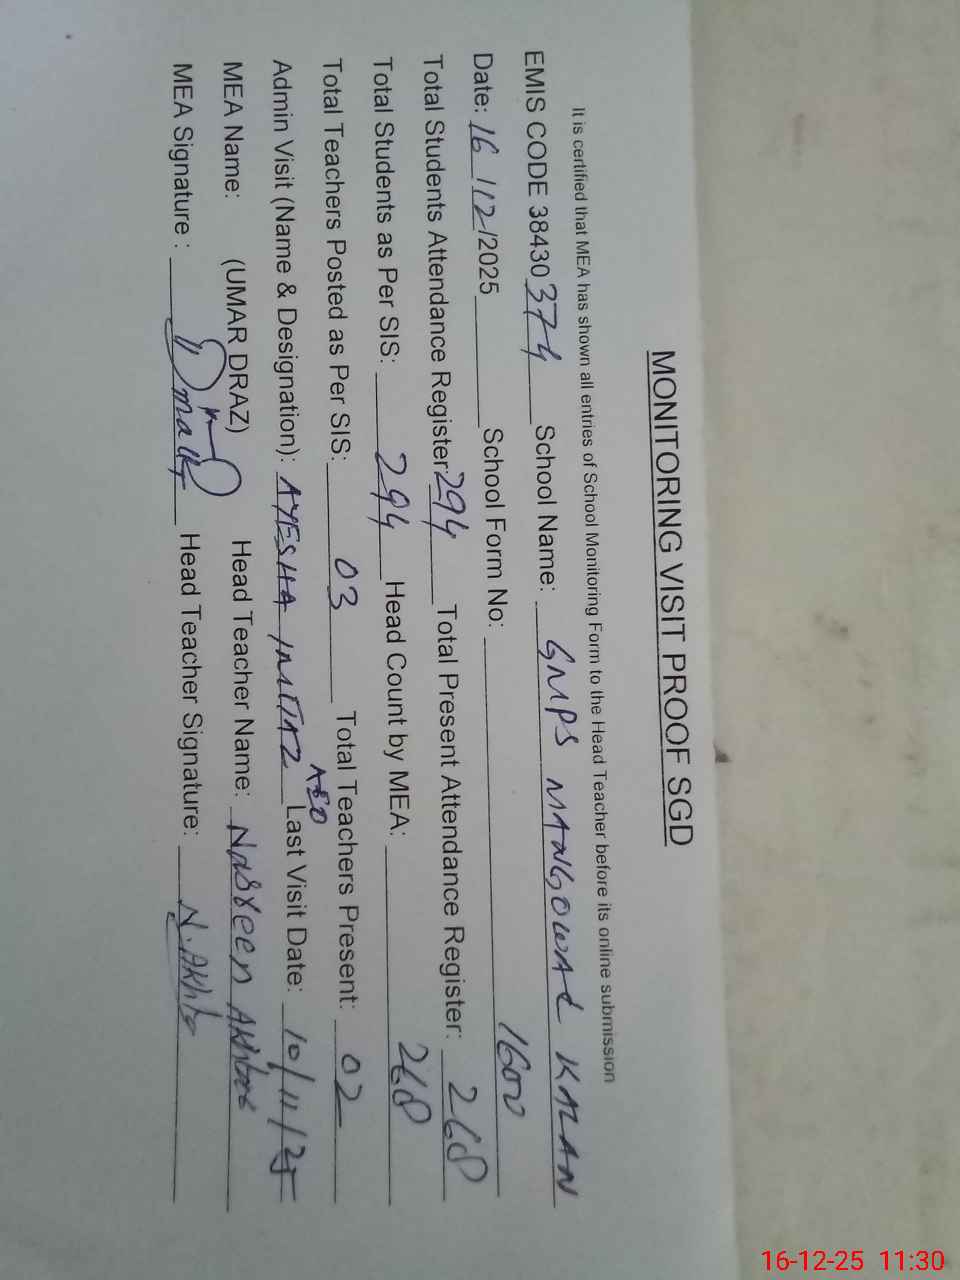 MONITORING VISIT PROOF SGD
It is certified that MEA has shown all entries of School Monitoring Form to the Head Teacher before its online submission
EMIS CODE 38430374 School Name: GMPS MANGOWAL KALAN
Date: 16/12/2025 School Form No: 1600
Total Students Attendance Register 294 Total Present Attendance Register: 268
Total Students as Per SIS: 294 Head Count by MEA: 268
Total Teachers Posted as Per SIS: 03 Total Teachers Present: 02
Admin Visit (Name & Designation): AYESHA IMTIAZ AEO Last Visit Date: 10/11/25
MEA Name: (UMAR DRAZ) Head Teacher Name: Nasreen Akhtar
MEA Signature : Head Teacher Signature: N.Akhtar
16-12-25 11:30